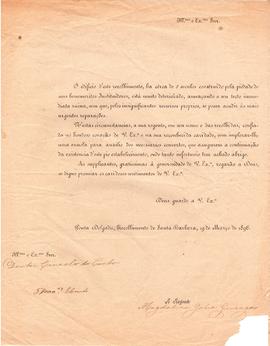 Ill.mo e Ex.mo Snr.
O edificio d'este recolhimento, ha cerca de 2 seculos construido pela piedade de
seus benemeritos Instituidores, está muito deteriorado, ameaçando o seu tecto immediata
ruina, sem que, pelos insignificantes recursos proprios, se possa acudir ás mais
urgentes reparações.
N'estas circumstancias, a sua regente, em seu nome e das recolhidas, confiada
no bondoso coração de V. Ex.a e na sua reconhecida caridade, vem implorar-lhe
uma esmola para auxilio dos necessarios concertos, que assegurem a continuação
da existencia d'este pio estabelecimento, onde tanto infortunio tem achado abrigo.
As supplicantes, gratissimas á generosidade de V. Ex.a, rogarão a Deus,
se digne premiar os caridosos sentimentos de V. Ex.a
Deus guarde a V. Ex.a
Ponta Delgada, Recolhimento de Santa Barbara, 19 de Março de 1896.
Ill.mo e Ex.mo Snr.
Doutor Ernesto do Canto
A Regente